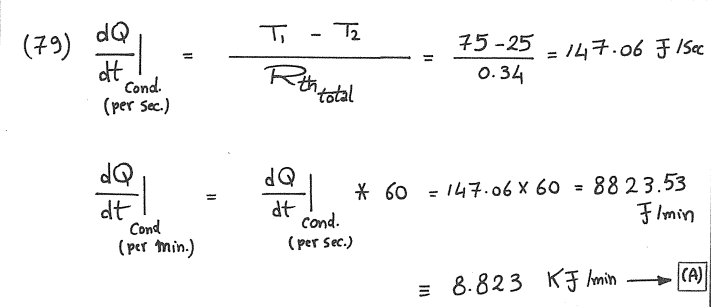 (79) dQ/dt | Cond. (per sec.) = T₁ - T₂ / Rth total = 75-25 / 0.34 = 147.06 J/Sec
dQ/dt | Cond (per min.) = dQ/dt | Cond. (per sec.) * 60 = 147.06 × 60 = 8823.53 J/min
≡ 8.823 KJ/min → (A)